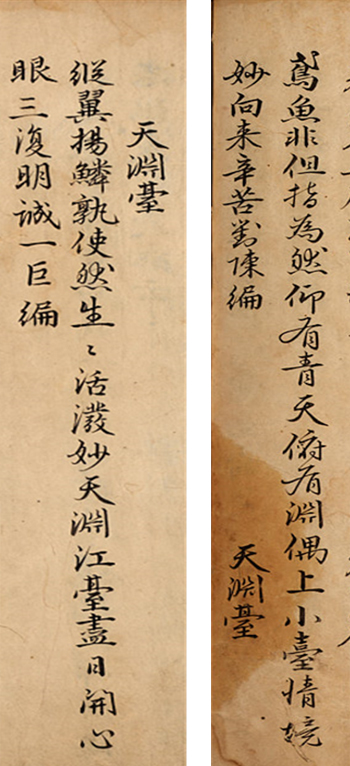 天淵臺
縱翼揚鱗孰使然生〻活潑妙天淵江臺盡日開心
眼三復明誠一巨編
鳶魚非但指為然仰有青天俯有淵偶上小臺情境
妙向来辛苦對陳編
天淵臺